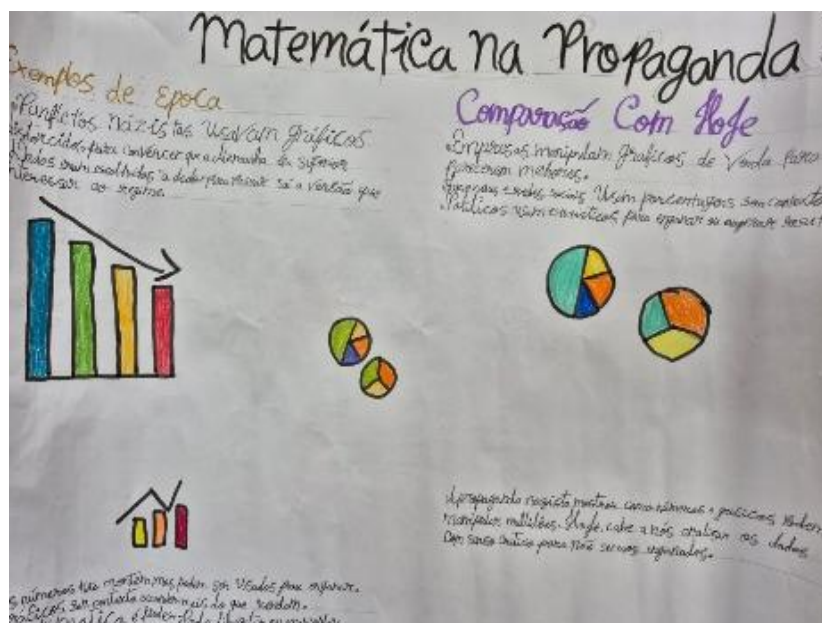 Matemática na Propaganda
Exemplos de Epoca
Panfletos nazistas usavam gráficos
distorcidos para convencer que a Alemanha era superior
Dados eram escolhidos a dedo para mostrar só a versão que
interessar ao regime.
Comparação Com Hoje
Empresas manipulam graficos de Venda para
parecerem melhores.
sociais Usam porcentagens sem contexto
Políticos usam estatísticas para enganar ou
A propaganda nazista mostrou como números e gráficos podem
manipular multidões. Hoje, cabe a nós analisar os dados
Com senso crítico para não sermos enganados.
números não mentem mas podem ser Usados para enganar.
sem contexto escondem mais do que revelam.